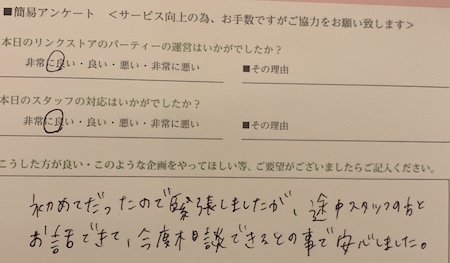 ■簡易アンケート ＜サービス向上の為、お手数ですがご協力をお願い致します＞
本日のリンクストアのパーティーの運営はいかがでしたか？
非常に良い・良い・悪い・非常に悪い ■その理由
本日のスタッフの対応はいかがでしたか？
非常に良い・良い・悪い・非常に悪い ■その理由
こうした方が良い・このような企画をやってほしい等、ご要望がございましたらご記入ください。
初めてだったので緊張しましたが、途中スタッフの方と
お話できて、今度相談できるとの事で安心しました。